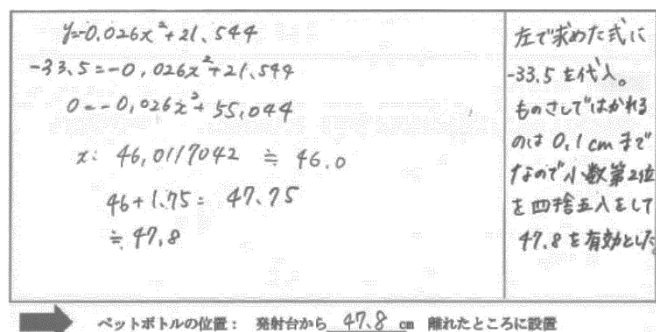 y=-0.026x²+21.544
-33.5=-0.026x²+21.544
0=-0.026x²+55.044
x: 46.0117042 ≒ 46.0
46+1.75= 47.75
≒ 47.8
左で求めた式に
-33.5を代入。
ものさしではかれる
のは 0.1cm まで
なので小数第2位
を四捨五入をして
47.8を有効とした。
ペットボトルの位置： 発射台から 47.8 cm 離れたところに設置